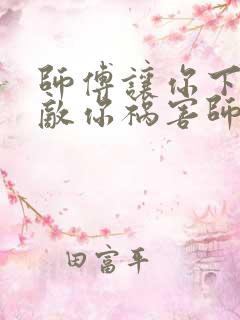 師傅讓你下
敵你禍害師
田富平